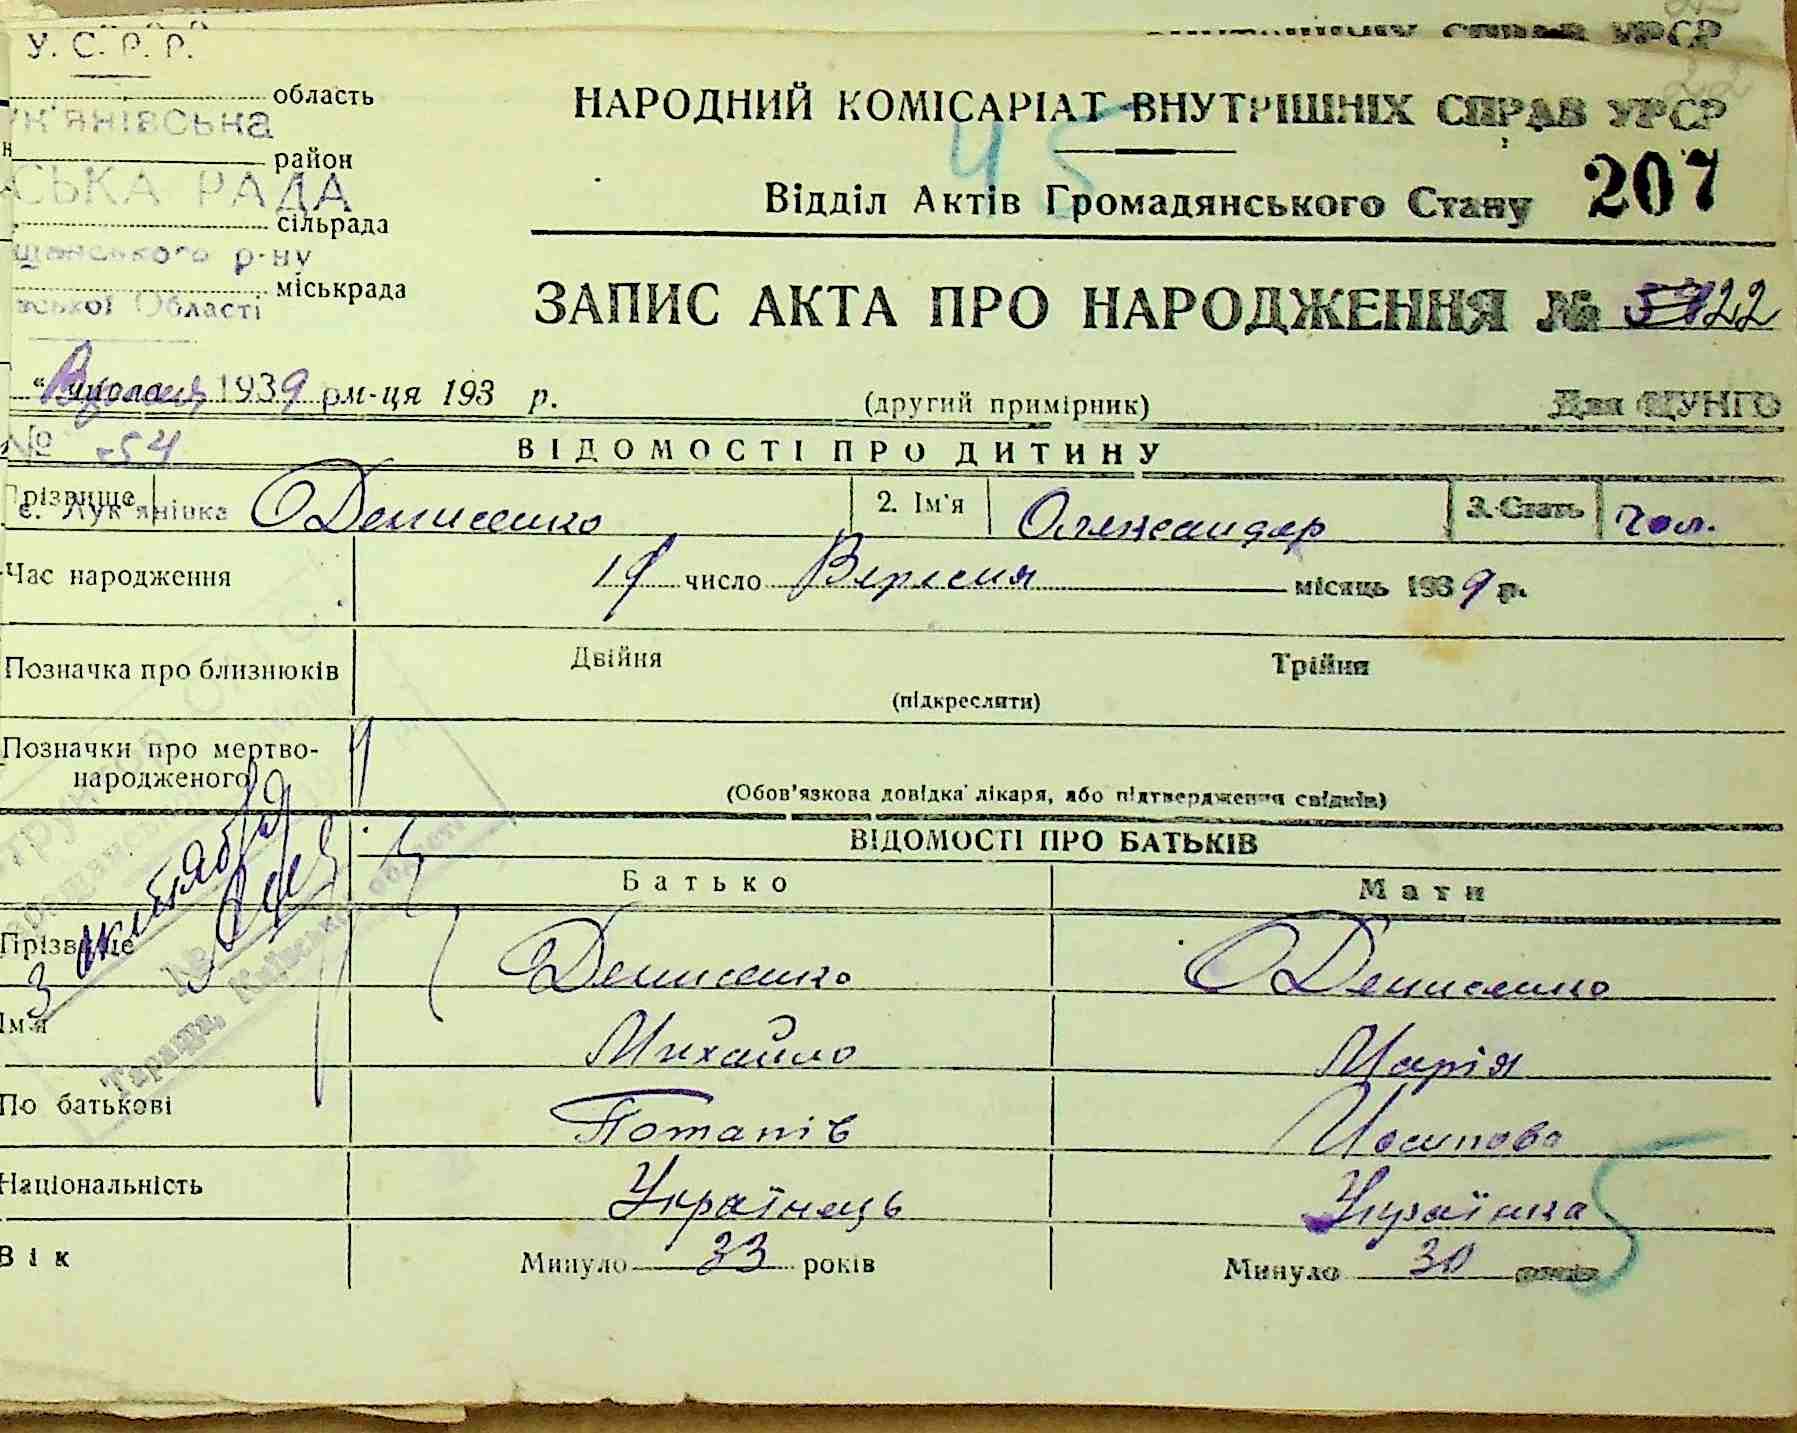 У. С. Р. Р.
область
ук'янівська
район
СЬКА РАДА
сільрада
щанського р-ну
міськрада
вської Області
НАРОДНИЙ КОМІСАРІАТ ВНУТРІШНІХ СПРАВ УРСР
45
Відділ Актів Громадянського Стану 207
ЗАПИС АКТА ПРО НАРОДЖЕННЯ № 22
Вересня 1939 р м-ця 193 р.
(другий примірник)
Для ЦУНГО
№ 54
ВІДОМОСТІ ПРО ДИТИНУ
Прізвище Денисенко 2. Ім'я Олександер 3. Стать чол.
с. Лук'янівка
Час народження 19 число Вересня місяць 1939 р.
Позначка про близнюків Двійня Трійня
(підкреслити)
Позначки про мертво-
народженого
(Обов'язкова довідка лікаря, або підтвердження свідків)
ВІДОМОСТІ ПРО БАТЬКІВ
Батько Мати
Прізвище Денисенко Денисенко
3 октября
№
Ім'я Михайло Марія
Тараща, Київської області
По батькові Потапів Йосипова
Національність Українець Українка
5
Вік Минуло 33 років Минуло 30 років